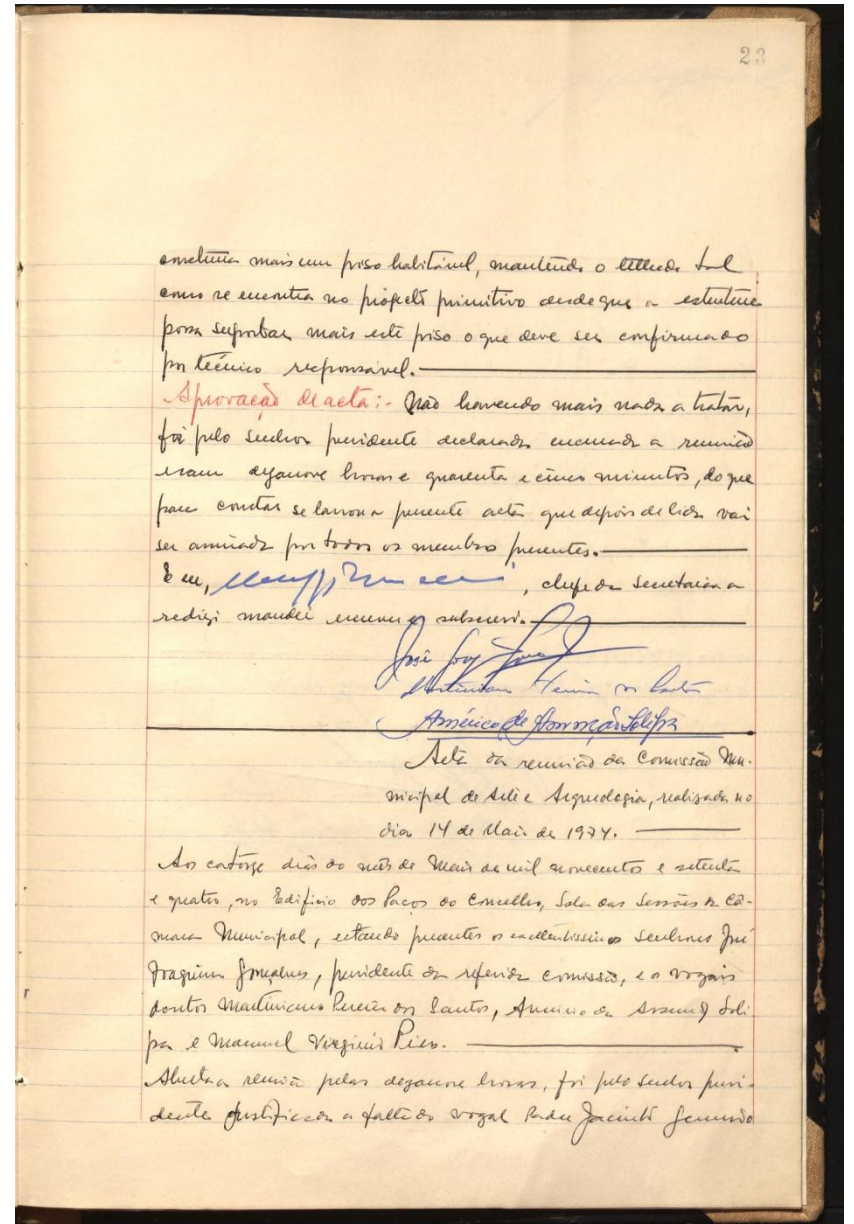 23
construa mais um piso habitável, mantendo o telhado tal
como se encontra no projecto primitivo desde que a estrutura
possa suportar mais este piso o que deve ser confirmado
por técnico responsável.
Aprovação de acta:- Não havendo mais nada a tratar,
foi pelo senhor presidente declarada encerrada a reunião
eram dezanove horas e quarenta e cinco minutos, do que
para constar se lavrou a presente acta que depois de lida vai
ser assinada por todos os membros presentes.
E eu, , chefe da secretaria a
redigi mandei escrever e subscrevi.
José
Martiniano Pereira dos Santos
Américo da Assunção Solipa
Acta da reunião da Comissão Mu-
nicipal de Arte e Arqueologia, realizada no
dia 14 de Maio de 1974.
Aos catorze dias do mês de Maio de mil novecentos e setenta
e quatro, no Edifício dos Paços do Concelho, Sala das Sessões da Câ-
mara Municipal, estando presentes os excelentissimos senhores José
Joaquim Gonçalves, presidente da referida comissão, e os vogais
doutor Martiniano Pereira dos Santos, Américo da Assunção Soli-
pa e Manuel Virginio Pires.
Aberta a reunião pelas dezanove horas, foi pelo senhor presi-
dente justificada a falta do vogal Padre Jacinto